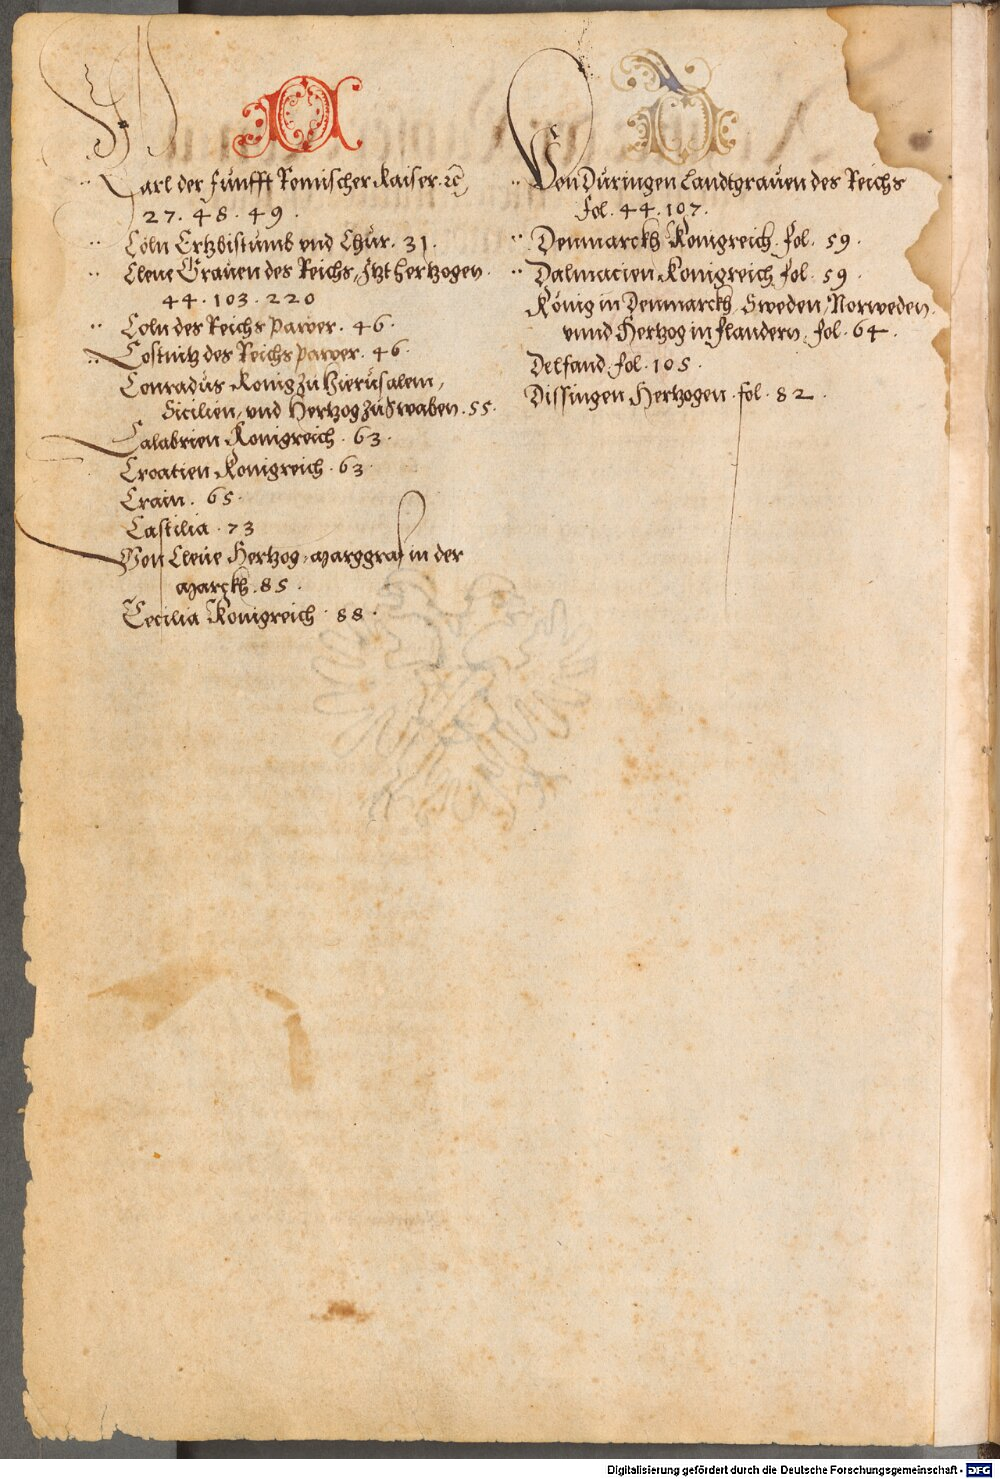 C
Carl der Funfft Romischer Kaiser. ꝛc̃
27. 48. 49.
Cöln Ertzbistumb vnd Chur. 31.
Cleue Grauen des Reichs, Itzt Hertzogen.
44. 103. 220
Coln des Reichs Pawer. 46.
Costnitz des Reichs Pawer. 46.
Conradus Konig zu Hierusalem,
Sicilien, vnd Hertzog zu Swaben. 55.
Calabrien Konigreich. 63.
Croatien Konigreich. 63.
Crain. 65.
Castilia. 73
Von Cleue Hertzog, Marggraf in der
Marckh. 85.
Cecilia Konigreich. 88.
D
Von Duringen Landtgrauen des Reichs
fol. 44. 107.
Denmarckh Konigreich. fol. 59.
Dalmacien Konigreich fol. 59.
König in Denmarckh, Sweden, Norweden,
vnnd Hertzog in Flandern, fol. 64.
Delfand. fol. 105.
Dissingen Hertzogen. fol. 82.
Digitalisierung gefördert durch die Deutsche Forschungsgemeinschaft - DFG